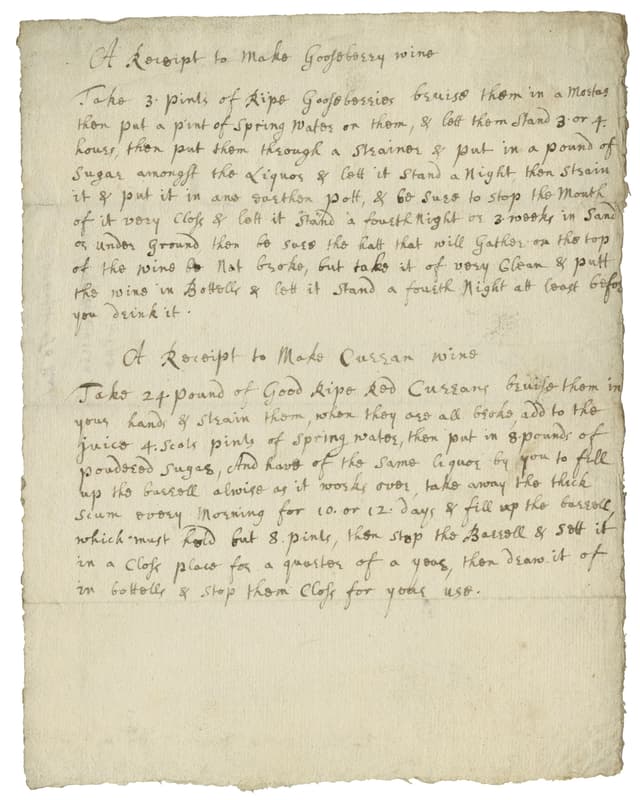 A Receipt to Make Gooseberry wine
Take 3 pints of Ripe Gooseberries bruise them in a Mortar
then put a pint of Spring Water on them, & lett them Stand 3 or 4
hours, then put them through a Strainer & put in a pound of
Sugar amongst the Liquor & lett it Stand a Night then Strain
it & put it in ane earthen pott, & be Sure to stop the Mouth
of it very Closs & lett it Stand a fourth Night or 3 weeks in Sand
or under Ground then be sure the hatt that will Gather on the top
of the wine be Nat broke, but take it of very Clean & putt
the wine in Bottells & lett it Stand a fourth Night att least before
you drink it.
A Receipt to Make Curran wine
Take 24 pound of Good Ripe Red Currans bruise them in
your hands & Strain them, when they are all broke, add to the
Juice 4 Scots pints of Spring water, then put in 8 pounds of
poudered Sugar, And have of the Same liquor by you to fill
up the barrell alwise as it works over, take away the thick
Scum every Morning for 10 or 12 days & fill up the barrell,
which must hold but 8 pints, then stop the Barrell & Sett it
in a Closs place for a quarter of a year, then draw it of
in bottells & stop them Closs for your use.